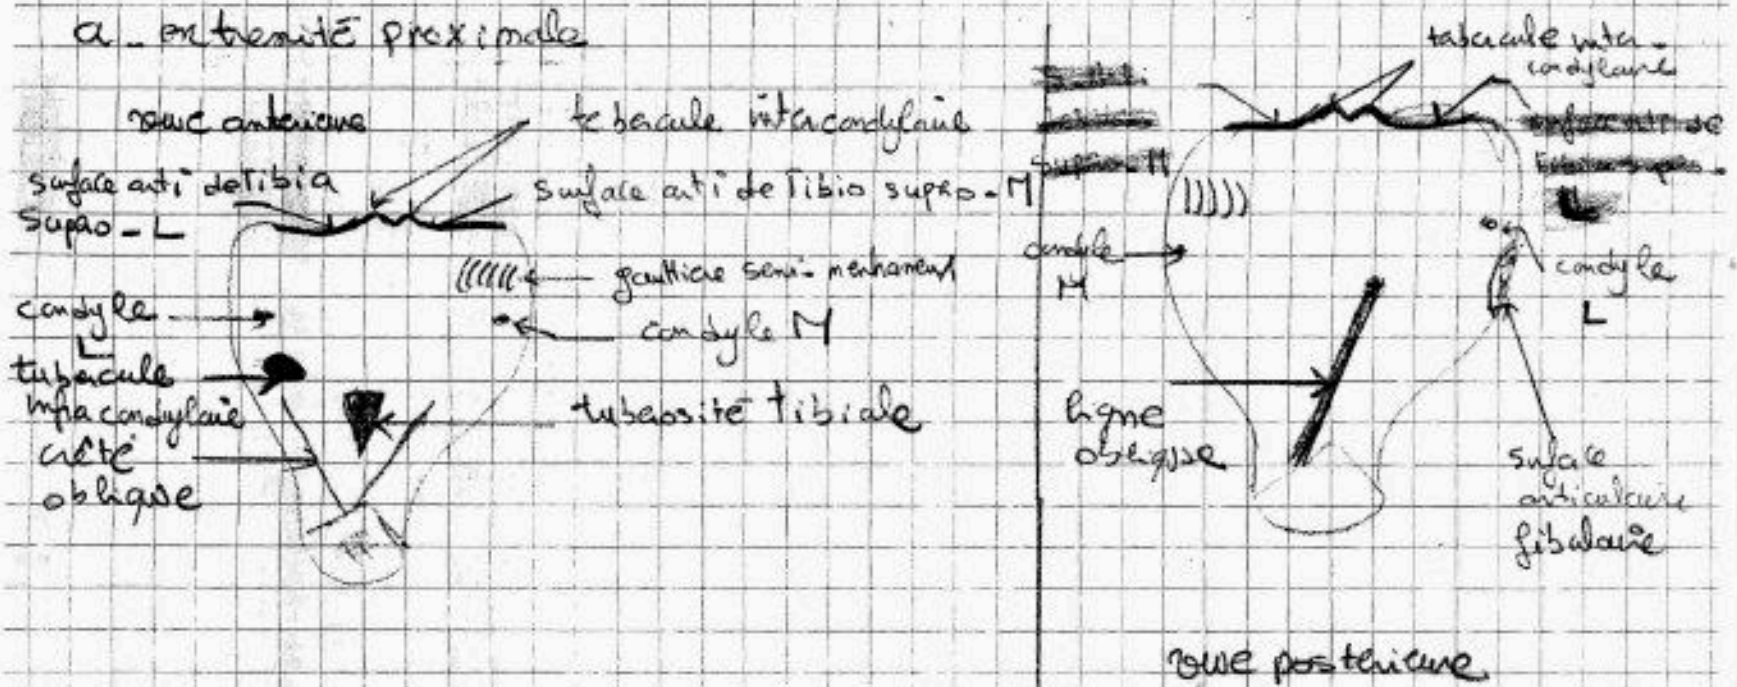 a - extremité proximale
vue anterieure
tubercule intercondylaire
surface arti de Tibia
supro - L
surface arti de Tibio supro - M
gouttiere semi-menbraneux
condyle
L
condyle M
tubercule
infracondylaire
tuberosité tibiale
crête
oblique
tubercule inter-
condylaire
supro - M
condyle
M
condyle
L
ligne
oblique
surface
articulaire
fibulaire
vue posterieure